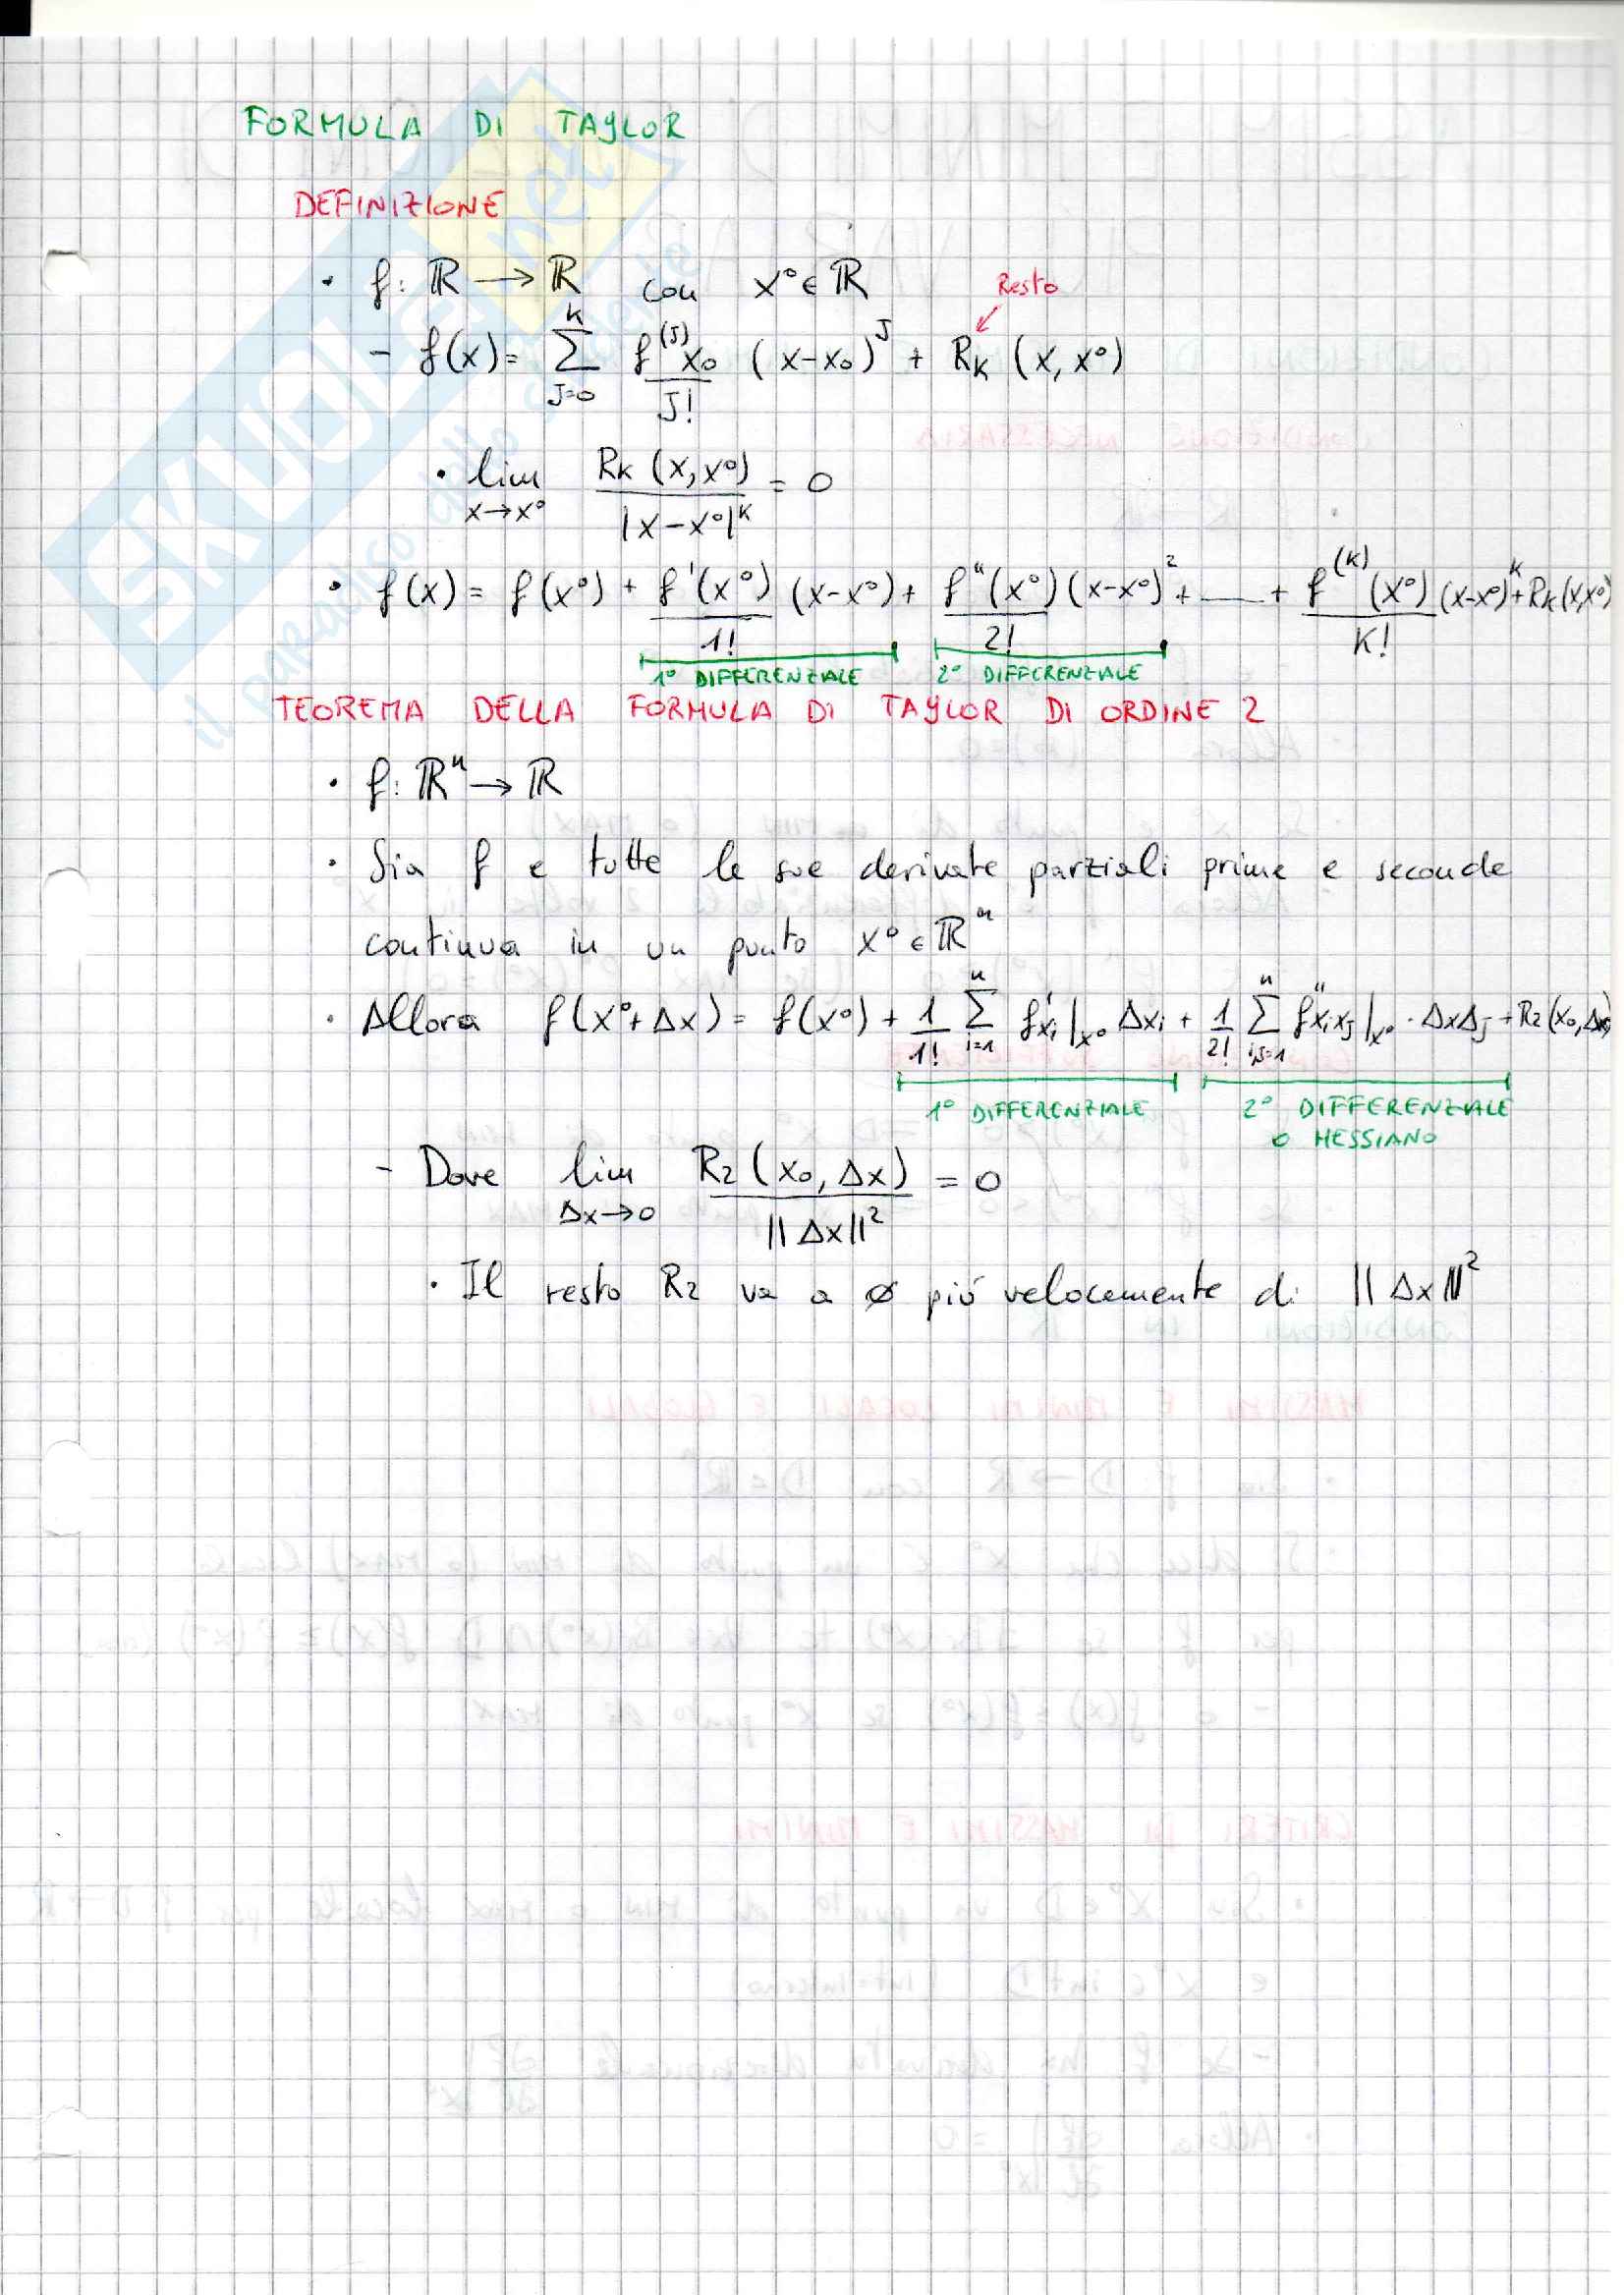 FORMULA DI TAYLOR
DEFINIZIONE
• f: ℝ → ℝ con x° ∈ ℝ
Resto
- f(x) = ∑_{J=0}^{K} f^{(J)} x₀ / J! (x-x₀)^J + R_K (x, x°)
• lim_{x→x°} R_K (x, x°) / |x-x°|^K = 0
• f(x) = f(x°) + f'(x°)/1! (x-x°) + f''(x°)/2! (x-x°)² + ___ + f^{(K)}(x°)/K! (x-x°)^K + R_K(x,x°)
1° DIFFERENZIALE 2° DIFFERENZIALE
TEOREMA DELLA FORMULA DI TAYLOR DI ORDINE 2
• f: ℝⁿ → ℝ
• Sia f e tutte le sue derivate parziali prime e seconde
continua in un punto x° ∈ ℝⁿ
• Allora f(x°+Δx) = f(x°) + 1/1! ∑_{i=1}^{n} f'xᵢ|_{x°} Δxᵢ + 1/2! ∑_{i,j=1}^{n} f''xᵢxⱼ|_{x°} · ΔxΔj + R₂(x₀,Δx)
1° DIFFERENZIALE 2° DIFFERENZIALE
O HESSIANO
- Dove lim_{Δx→0} R₂(x₀, Δx) / ||Δx||² = 0
• Il resto R₂ va a ø più velocemente di ||Δx||²
SKUOLA.net
il paradiso dello studente